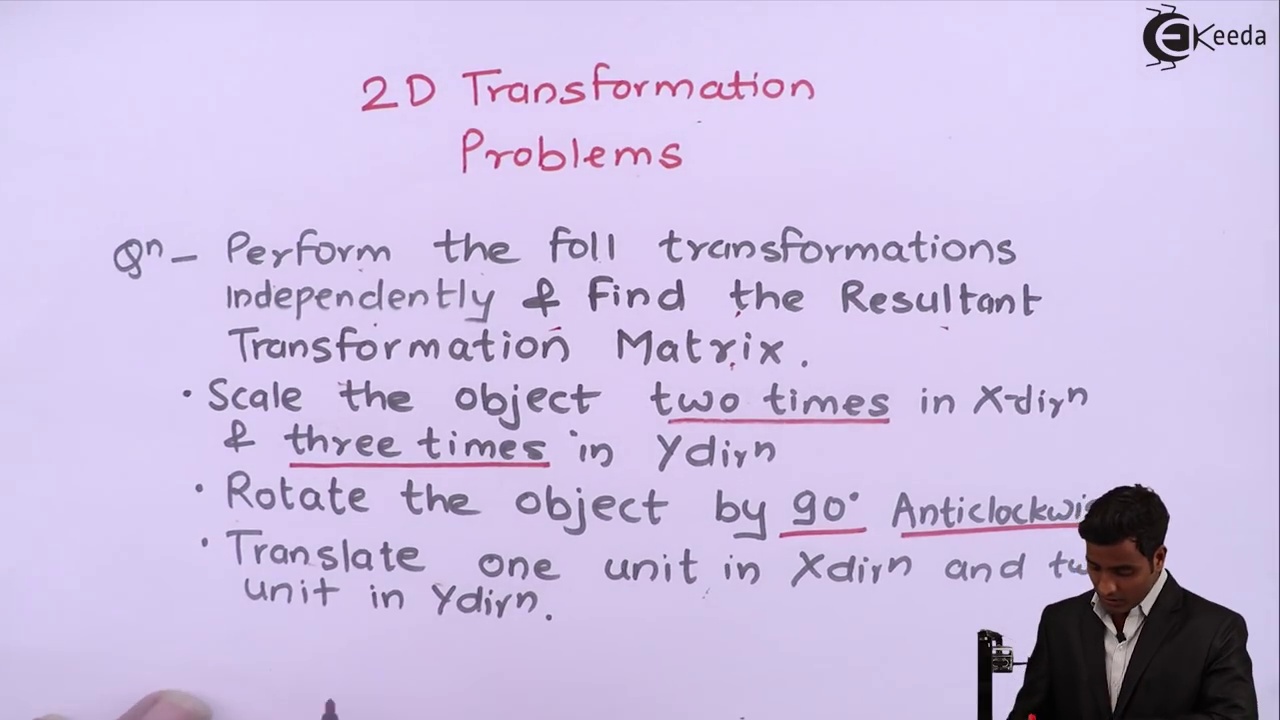 EKeeda
2D Transformation
Problems
Qn - Perform the foll transformations
Independently & Find the Resultant
Transformation Matrix.
• Scale the object two times in X-dirn
& three times in Ydirn
• Rotate the object by 90° Anticlockwis
• Translate one unit in Xdirn and tw
unit in Ydirn.